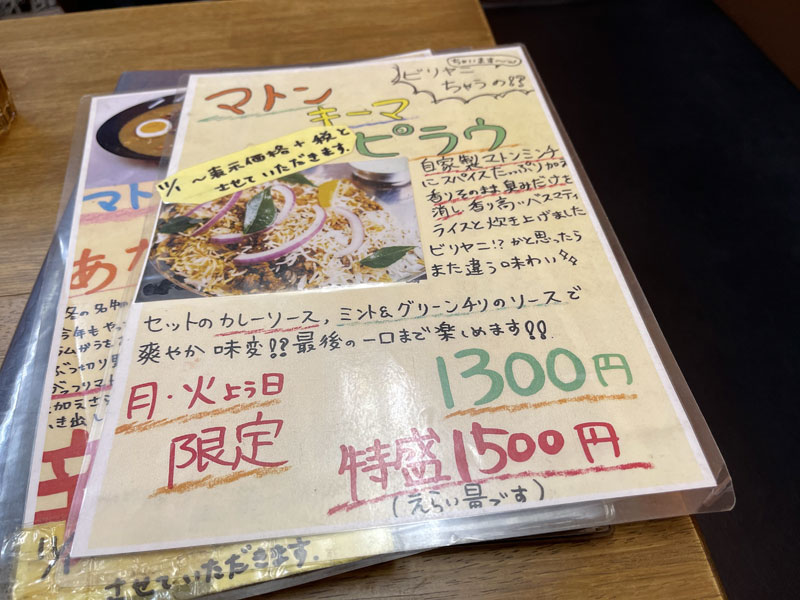 ちゃいます〜
ビリヤニ
ちゃうの!?
マトン
キーマ
ピラウ
11/1 〜表示価格+税と
させていただきます.
自家製マトンミンチ
にスパイスたっぷり加え
香りそのまま臭みだけを
消し香り高いバスマティ
ライスと炊き上げました
ビリヤニ!?かと思ったら
また違う味わい
セットのカレーソース,ミント&グリーンチリのソースで
爽やか味変!!最後の一口まで楽しめます!!
月・火よう日
限定
1300円
特盛1500円
(えらい量です)
マト
あ
冬の名物
今年もや
ラムがうを
ぶつ切り
加えさら
き出し
させていただきます.